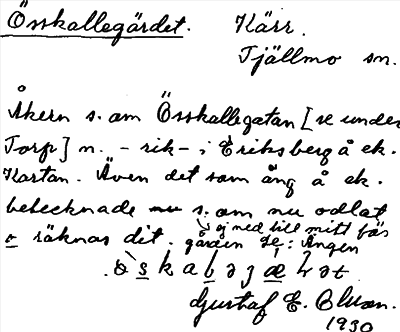 Össkallegärdet. Kärr.
Tjällmo sn.
Åkern s. om Össkallegatan [se under
Torp] n. - rik - i Eriksberg å ek.
Kartan. Även det som äng å ek.
betecknade nu s. om nu odlat
o räknas dit. ej ned till mitt för
gården Se: Ängen
Gustaf E.
1930